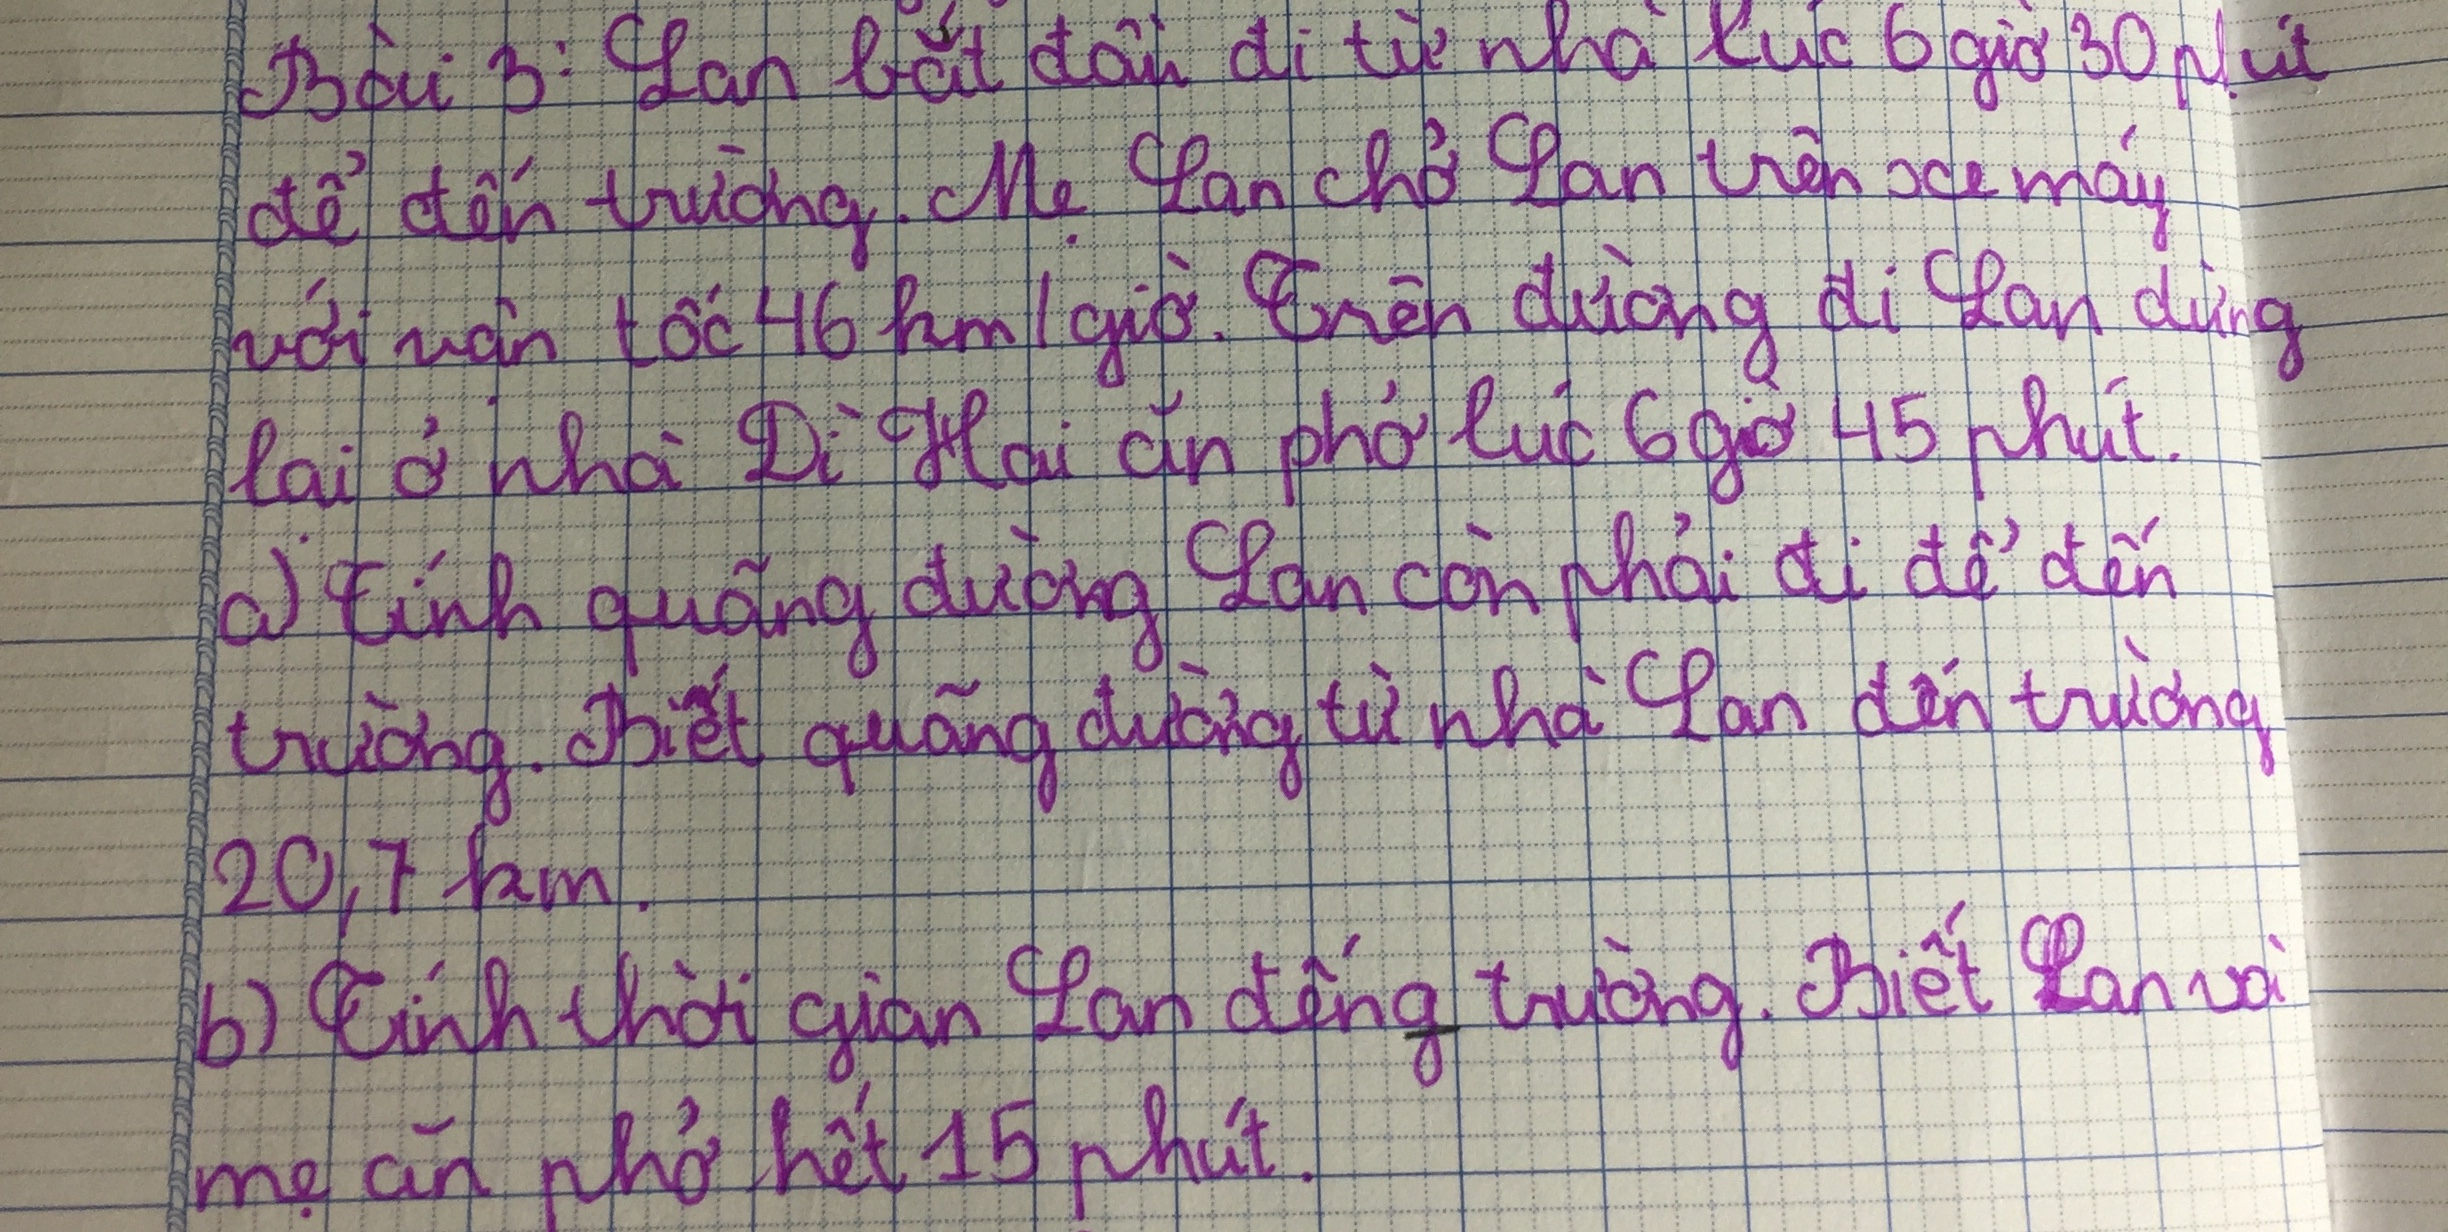 Bài 3: Lan bắt đầu đi từ nhà lúc 6 giờ 30 phút
để đến trường. Mẹ Lan chở Lan trên xe máy
với vận tốc 46 km/giờ. Trên đường đi Lan dừng
lại ở nhà Dì Hai ăn phở lúc 6 giờ 45 phút.
a) Tính quãng đường Lan còn phải đi để đến
trường. Biết quãng đường từ nhà Lan đến trường
20,7 km.
b) Tính thời gian Lan đếng trường. Biết Lan và
mẹ ăn phở hết 15 phút.